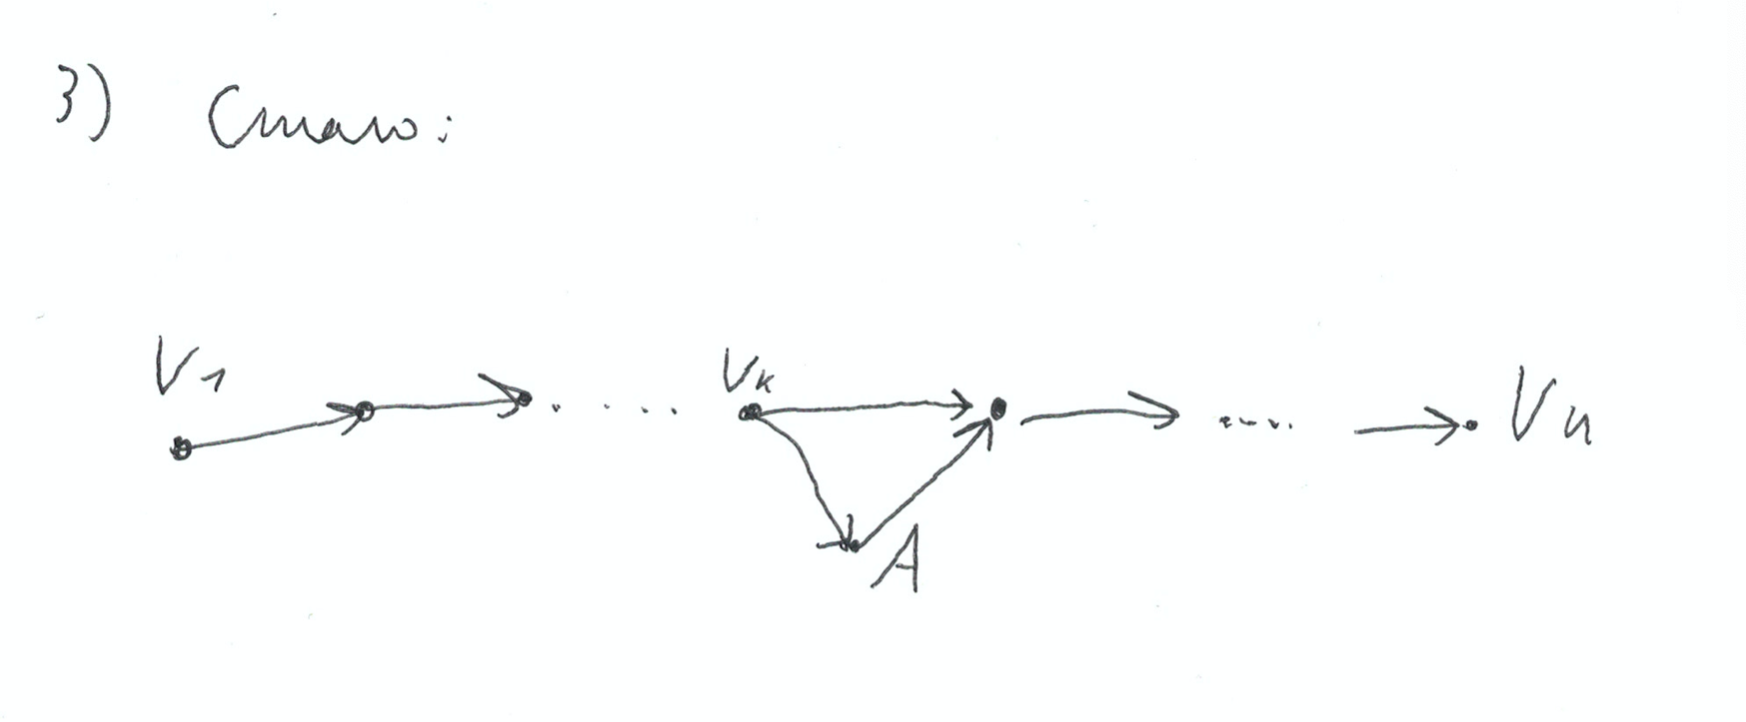 3) Стало:
V1 Vк Vn
A